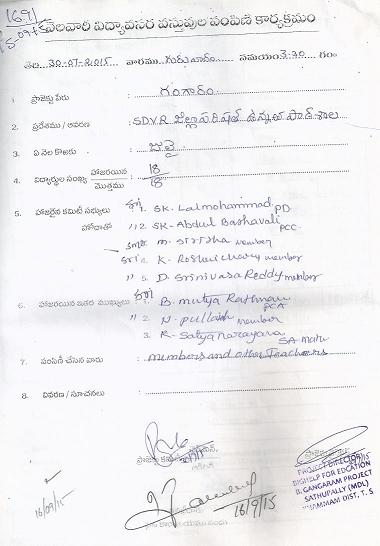 (69)
నెలవారి విద్యావసర వస్తువుల పంపిణి కార్యక్రమం
తేది 30-07-2015 వారము గురువారం సమయం 3-30 గం
1. ప్రాజెక్టు పేరు : గంగారం
2. ప్రదేశము / ఆవరణ : S.D.V.R జిల్లా పరిషత్ ఉన్నత పాఠశాల
3. ఏ నెల కొరకు : జులై
4. విద్యార్థుల సంఖ్య హాజరయిన 18
మొత్తము 18
5. హాజరైన కమిటీ సభ్యులు శ్రీ 1. SK. Lalmohammad PD.
హోదాతో " 2. SK. Abdul Bashavali PCC.
m. Sirisha member
K. Roshui chary member
" 5. D. Srinivasa Reddy member
6. హాజరయిన ఇతర ముఖ్యులు : శ్రీ 1. B. mutya Rathnam PCA
" 2. N. pullaiah member
3. K. Satyanarayana SA Maths
7. పంపిణీ చేసిన వారు : members and other Teachers
8. వివరణ / సూచనలు :
16/9/15
PROJECT DIRECTOR
BIGHELP FOR EDCATION
B. GANGARAM PROJECT
SATHUPALLY (MDL)
KHAMMAM DIST, T. S
16/09/15
16/9/15